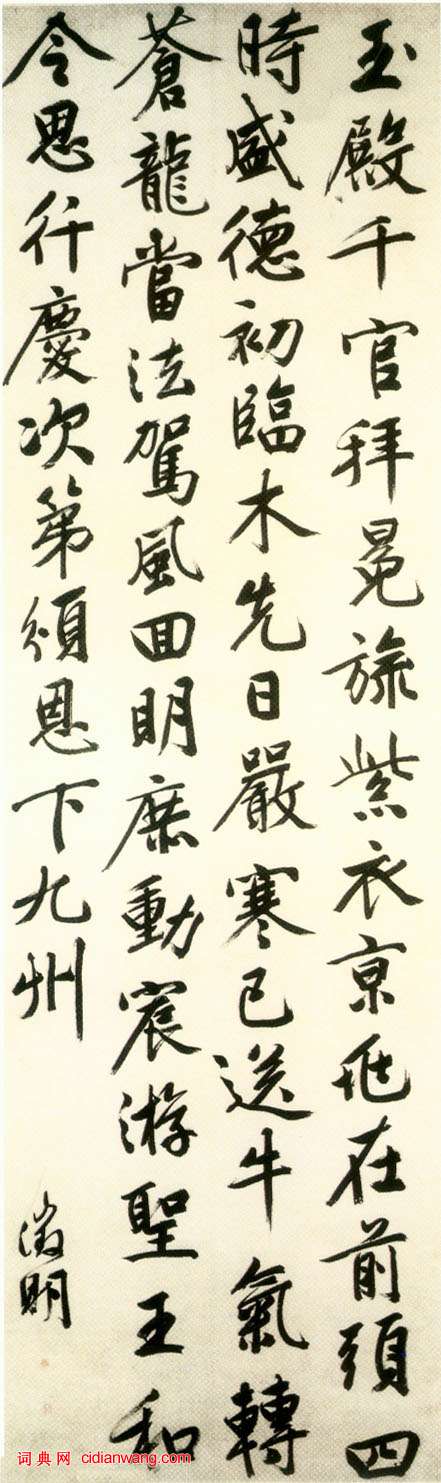 玉殿千官拜冕旒紫衣京兆在前頭四
時盛德初臨木先日嚴寒已送牛氣轉
蒼龍當法駕風回明庶動宸游聖王和
令思行慶次第頒恩下九州
徵明
词典网 cidianwang.com